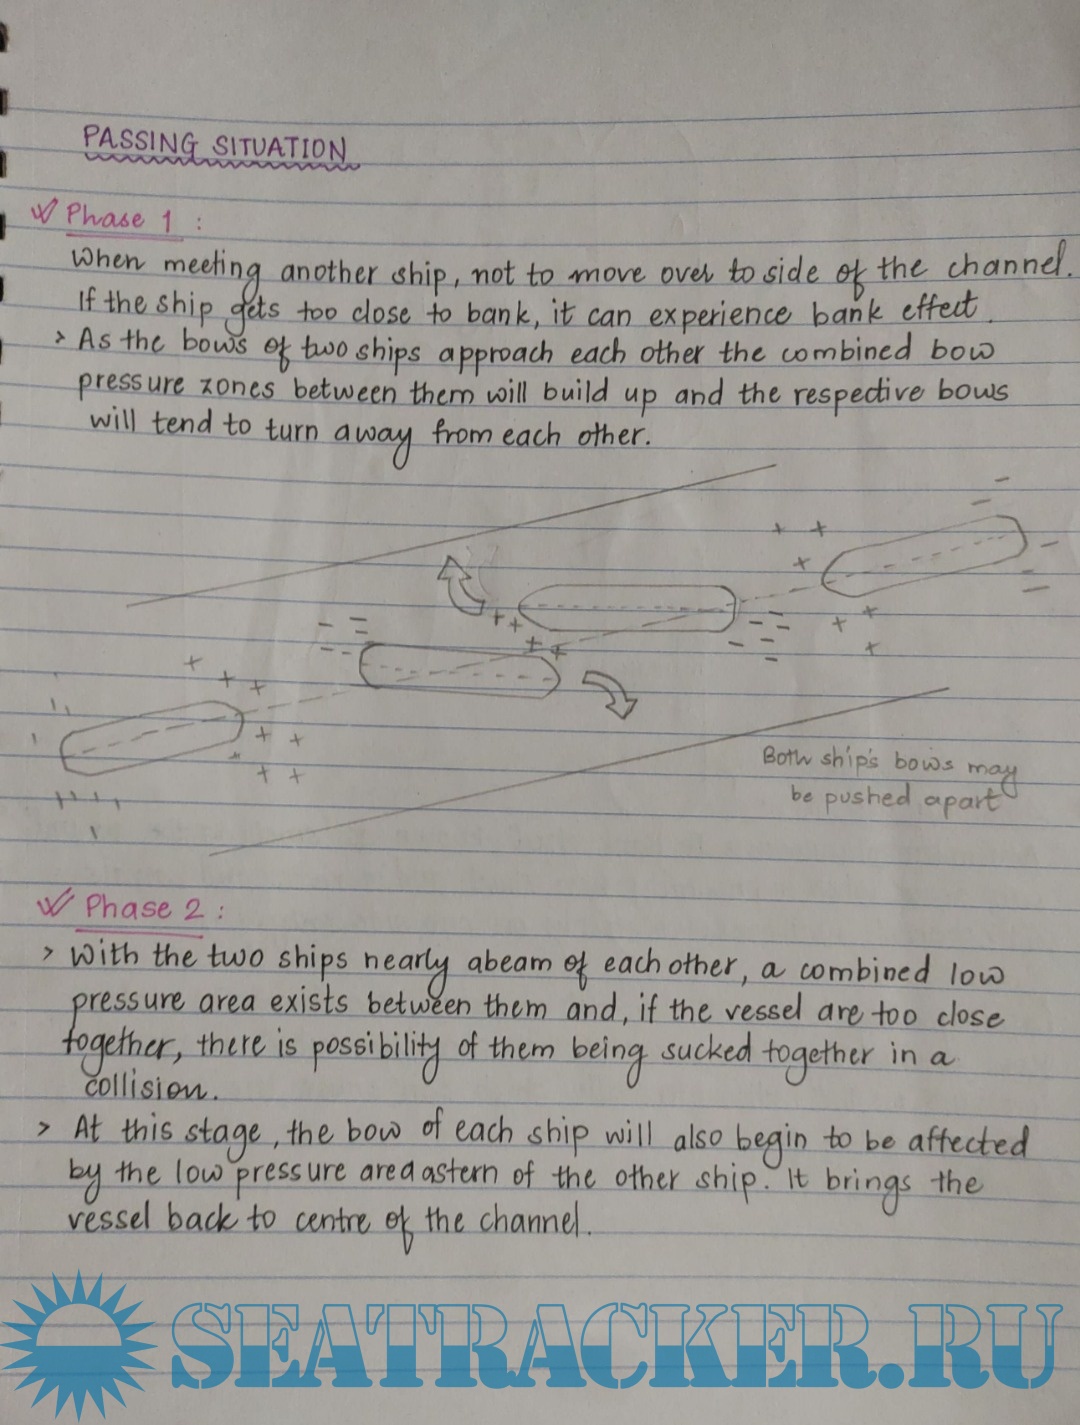 PASSING SITUATION
Phase 1 :
When meeting another ship, not to move over to side of the channel.
If the ship gets too close to bank, it can experience bank effect.
> As the bows of two ships approach each other the combined bow
pressure zones between them will build up and the respective bows
will tend to turn away from each other.
Both ship's bows may
be pushed apart
Phase 2 :
> With the two ships nearly abeam of each other, a combined low
pressure area exists between them and, if the vessel are too close
together, there is possibility of them being sucked together in a
collision.
> At this stage, the bow of each ship will also begin to be affected
by the low pressure area astern of the other ship. It brings the
vessel back to centre of the channel.
SEATRACKER.RU